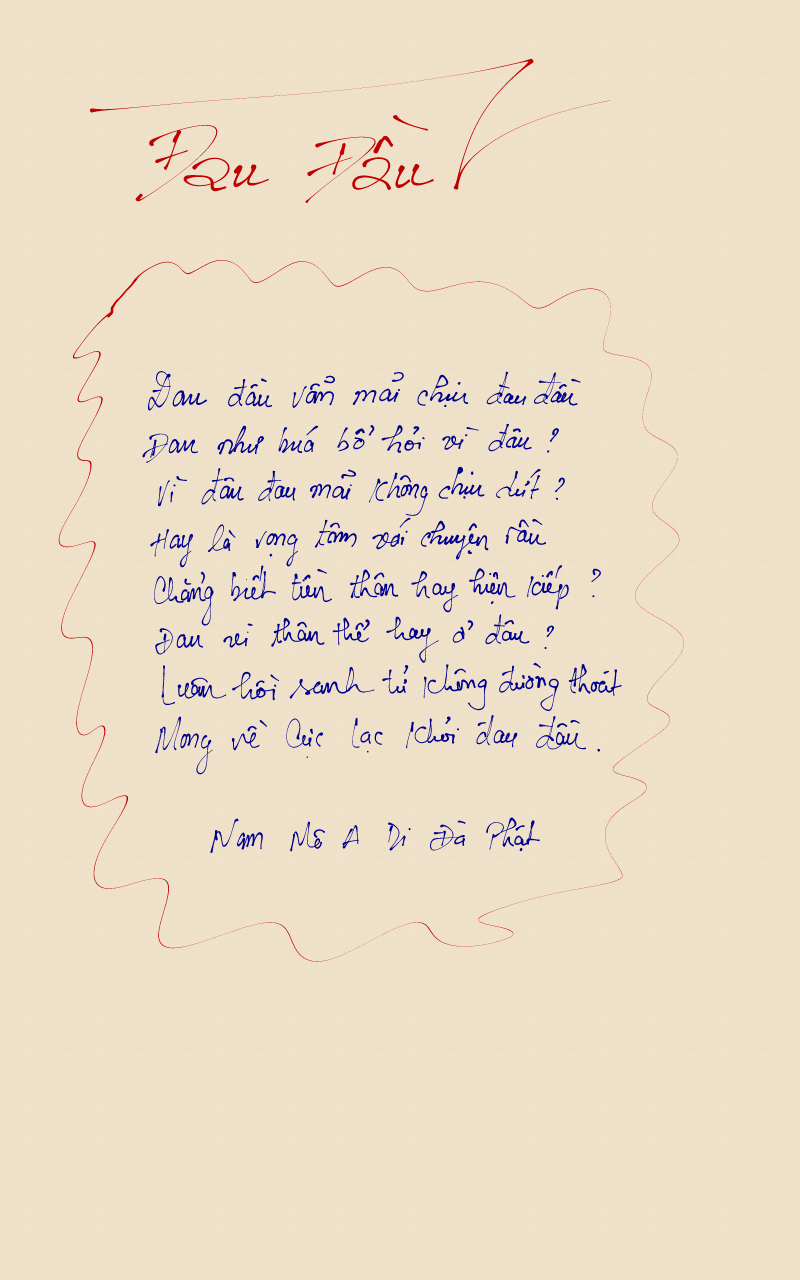 Đau Đầu
Đau đầu vẫn mãi chịu đau đầu
Đau như búa bổ hỏi vì đâu ?
Vì đâu đau mãi không chịu dứt ?
Hay là vọng tâm với chuyện rầu
Chẳng biết tiền thân hay hiện kiếp ?
Đau vì thân thể hay ở đâu ?
Luân hồi sanh tử không đường thoát
Mong về Cực Lạc khỏi đau đầu .
Nam Mô A Di Đà Phật